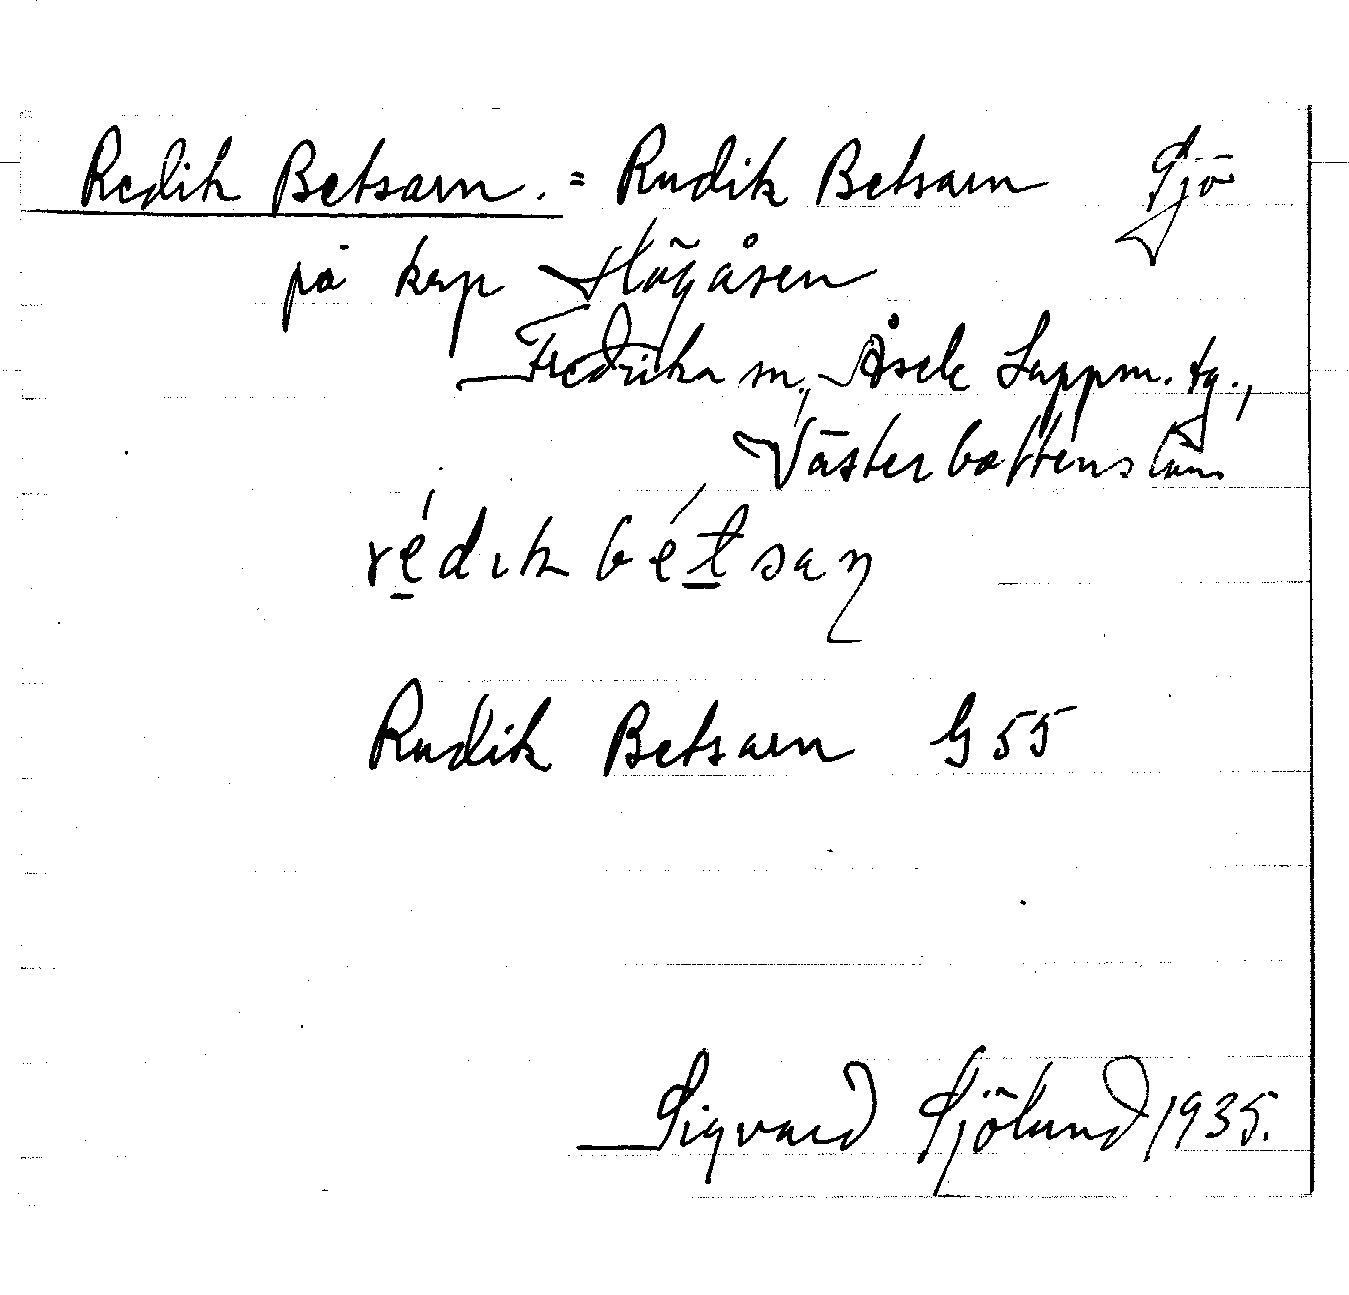 Redik Betsarn. = Rudik Betsarn Sjö
på krp Högåsen
Fredrika sn, Åsele Lappm. tg.,
Västerbottens län
ré̱dık bét̲saɳ
Rudik Betsarn G 55
Sigvard Sjölund 1935.